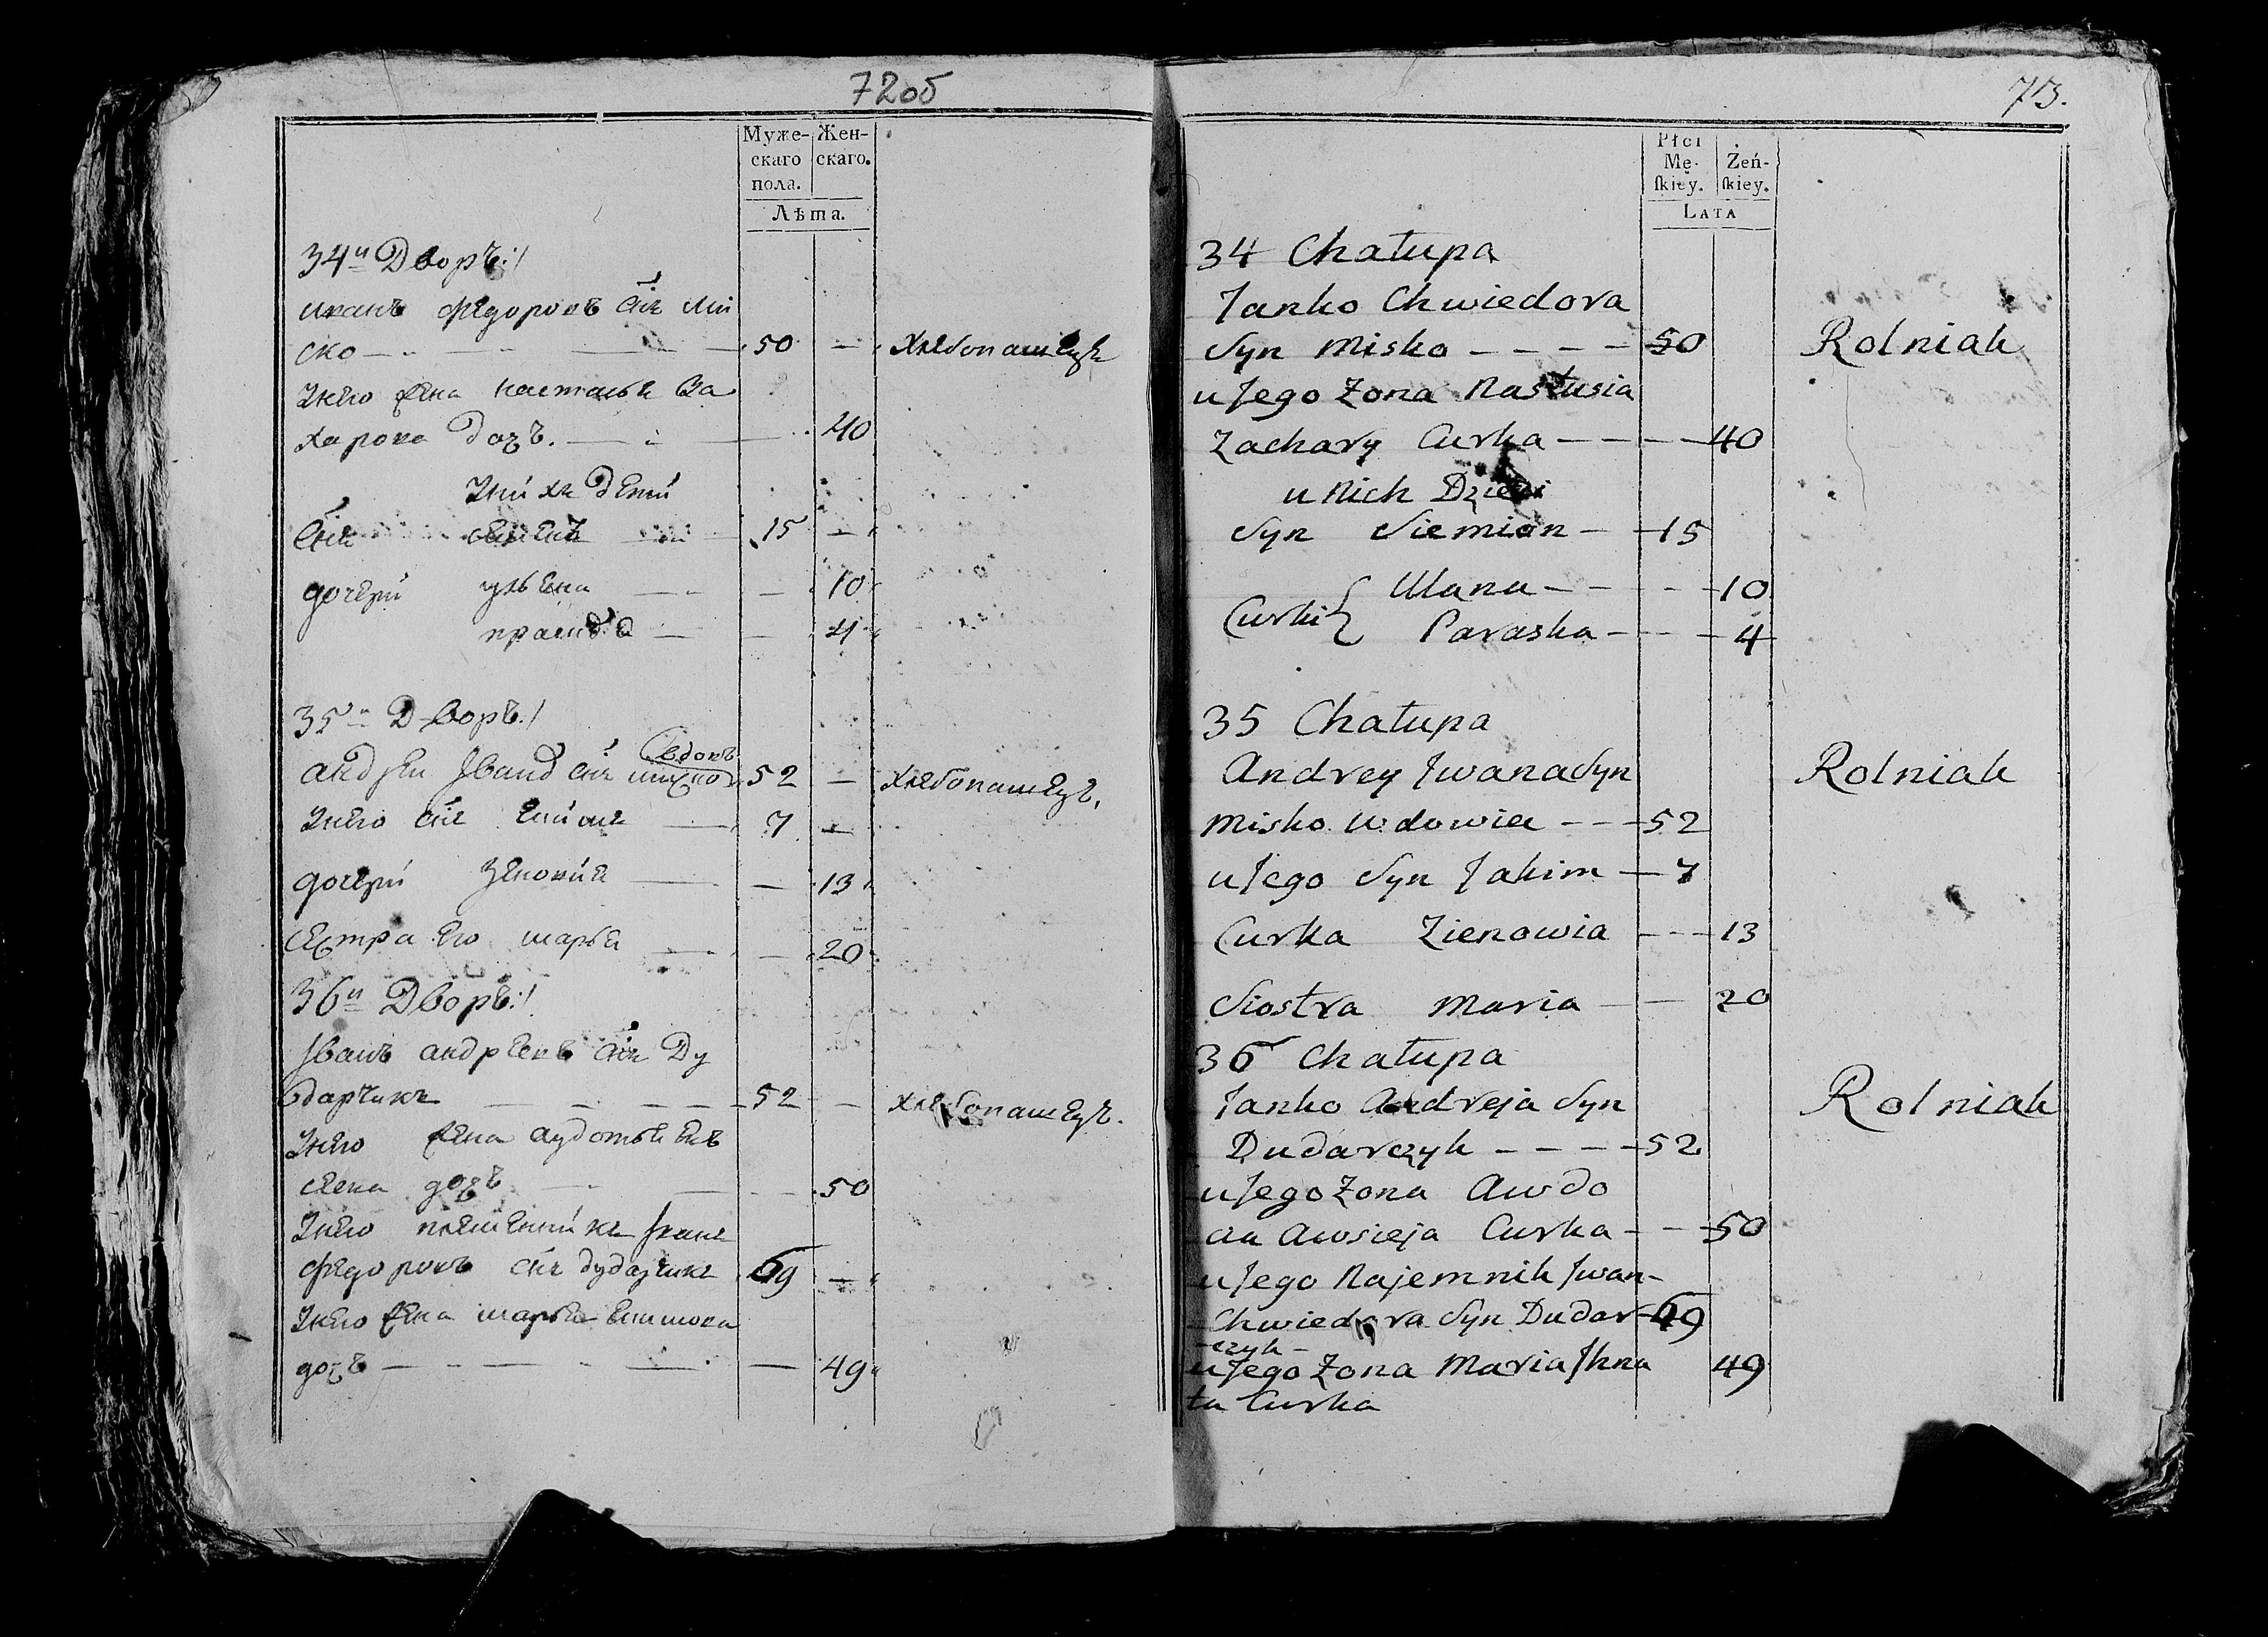 72об
Муже-
скаго
пола.
Жен-
скаго.
Лѣта.
34й Дворъ:/
иванъ федоровъ снъ ми
ско 50 — хлебопашецъ
Унего жена настасья за
харова дочъ. 40
Унихъ дети
снъ 15 —
дочери ульяна — 10
— 4
35й Дворъ:/
андрей Иванъ снъ миско вдовъ 52 — хлебопашецъ,
Унего снъ 7 —
дочери зеновия — 13
сестра его марья — 20
36й Дворъ:/
Иванъ андреевъ снъ Ду
дарчикъ 52 — хлебопашецъ.
Унего жена аудотья евъ
сеева дочъ 50
Унего Иванъ
федоровъ снъ дударчикъ 69 —
Унего жена марья
дочъ — 49
73.
Płci
Mę-
ſkiey.
Żeń-
ſkiey.
LATA
34 Chałupa
Janko Chwiedora
Syn Misko - - - - 50 Rolnik
u Jego Żona Nastusia
Zachary Curka - - - - 40
u Nich Dzieci
Syn Siemion - - 15
Curki { Ulana - - - - 10
Paraska - - - - 4
35 Chałupa
Andrey Jwana Syn Rolnik
Misko wdowiec - - - 52
u Jego Syn Jakim - 7
Curka Zienowia - - - 13
Siostra Maria - - 20
36 Chałupa
Janko Andreja Syn Rolnik
Dudarczyk - - - - 52
u Jego Żona Awdo
cia Awsieja Curka - - - 50
u Jego Najemnik Jwan-
Chwiedora Syn Dudar- 69
-czyk-
u Jego Żona Maria Jhna 49
ta Curka